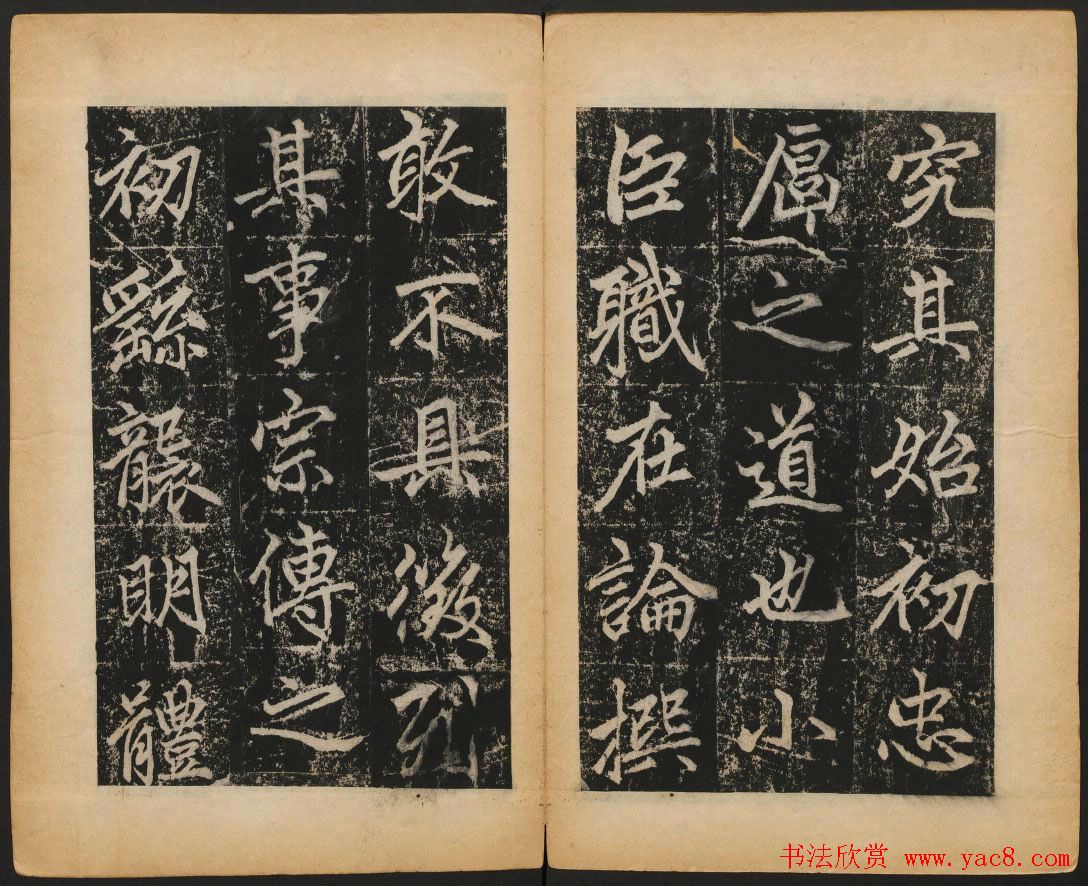 究其始初忠
之道也小
臣職在論撰
敢不具徵
其事宗傳之
初繇襲明體
书法欣赏 www.yac8.com